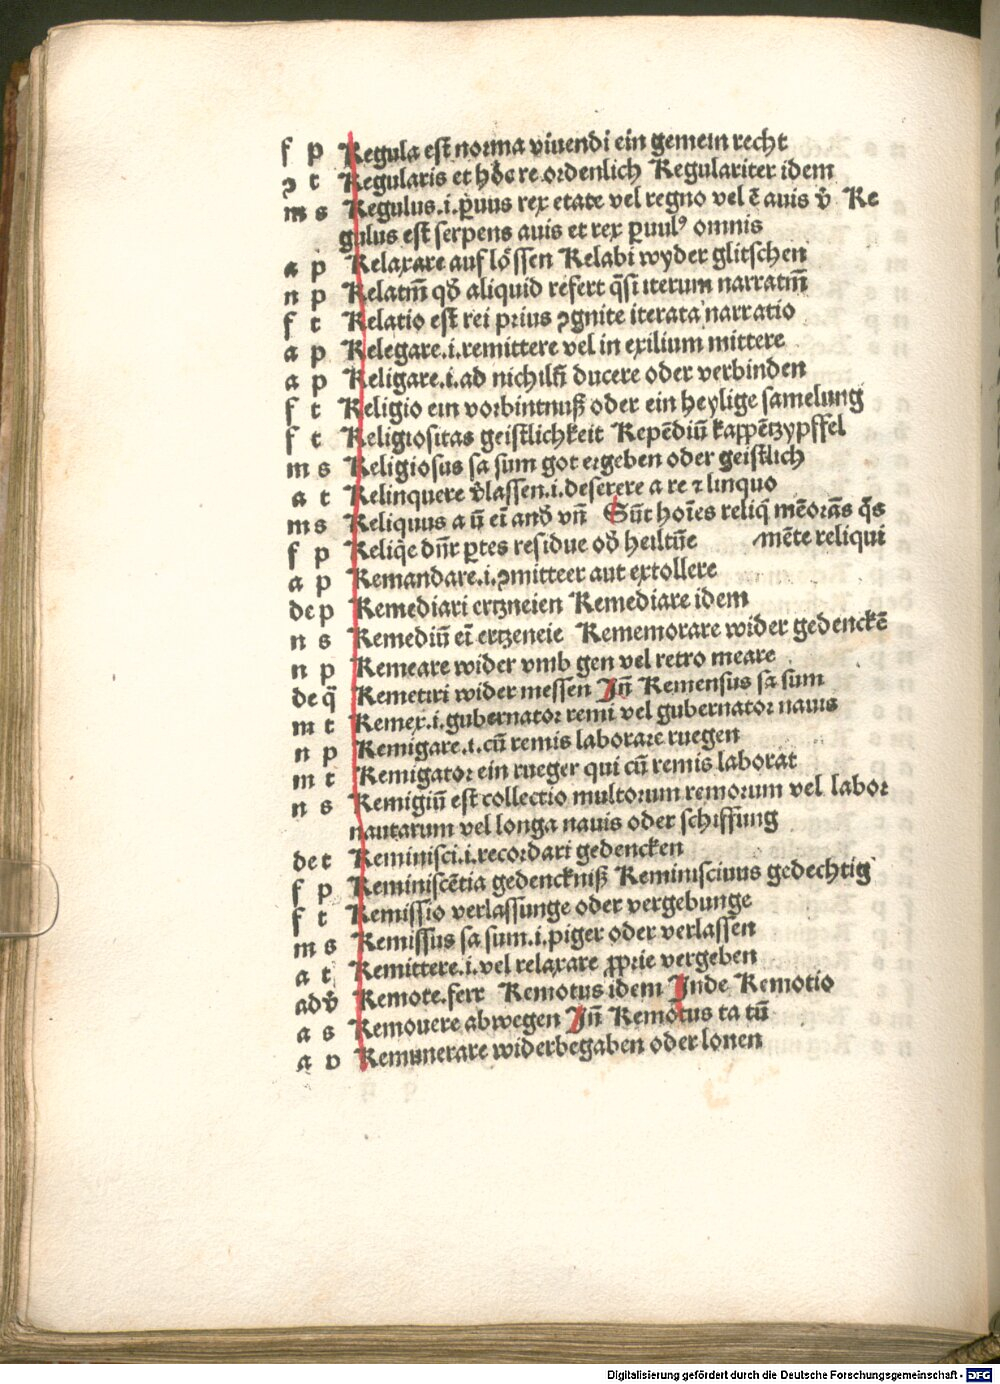 f p Regula est norma viuendi ein gemein recht
ꝯ t Regularis et hoc re ordenlich Regulariter idem
m s Regulus.i.p̄uus rex etate vel regno vel ē auis v̄ Re
gulus est serpens auis et rex ꝑuulꝰ omnis
a p Relaxare auf lössen Relabi wyder glitschen
n p Relatm̄ qd̄ aliquid refert q̄si iterum narratm̄
f t Relatio est rei prius ꝯgnite iterata narratio
a p Relegare.i.remittere vel in exilium mittere
a p Religare.i.ad nichilū ducere oder verbinden
f t Religio ein vorbintnuß oder ein heylige samelung
f t Religiositas geistlichkeit Repēdiū kappētzypffel
m s Religiosus sa sum got ergeben oder geistlich
a t Relinquere v̄lassen.i.deserere a re ⁊ linquo
m s Reliquus a ū eī and̄ vn̄ Sūt hoīes reliq̄ mēorās q̄s
f p Reliq̄e dn̄r ꝑtes residue od̄ heiltūe mēte reliqui
a p Remandare.i.ꝯmitteer aut extollere
de p Remediari ertzneien Remediare idem
n s Remediū eī ertzeneie Rememorare wider gedenckē
n p Remeare wider vmb gen vel retro meare
de q̄ Remetiri wider messen Jn̄ Remensus sa sum
m t Remex.i.gubernator remi vel gubernator nauis
n p Remigare.i.cū remis laborare ruegen
m t Remigator ein rueger qui cū remis laborat
n s Remigiū est collectio multorum remorum vel labor
nautarum vel longa nauis oder schiffung
de t Reminisci.i.recordari gedencken
f p Reminiscētia gedenckniß Reminisciuus gedechtig
f t Remissio verlassunge oder vergebunge
m s Remissus sa sum.i.piger oder verlassen
a t Remittere.i.vel relaxare ꝓprie vergeben
adv̄ Remote.ferr Remotus idem Jnde Remotio
a s Remouere abwegen Jn̄ Remotus ta tū
a p Remunerare widerbegaben oder lonen
Digitalisierung gefördert durch die Deutsche Forschungsgemeinschaft - DFG